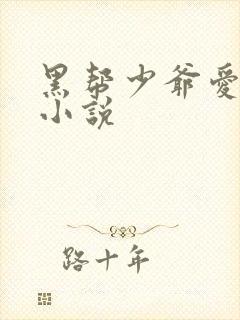 黑帮少爷愛
小説
路十年